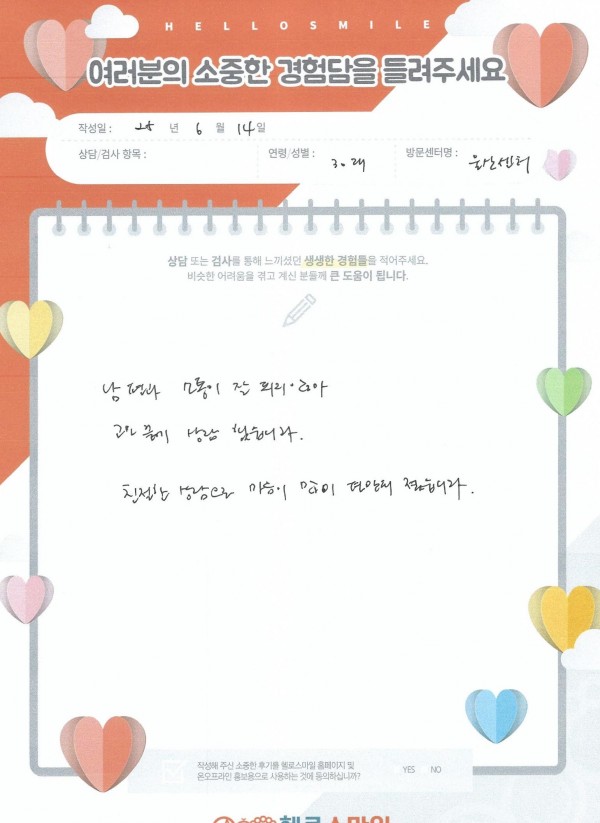 HELLOSMILE
여러분의 소중한 경험담을 들려주세요
작성일 : 25 년 6 월 14일
상담/검사 항목 : 연령/성별 : 30대 방문센터명 :
상담 또는 검사를 통해 느끼셨던 생생한 경험들을 적어주세요.
비슷한 어려움을 겪고 계신 분들께 큰 도움이 됩니다.
남편과 소통이 잘 되지 않아
고민 끝에 상담 했습니다.
친절한 상담으로 마음이 많이 편안해 졌습니다.
작성해 주신 소중한 후기를 헬로스마일 홈페이지 및
온오프라인 홍보용으로 사용하는 것에 동의하십니까?
YES NO
헬로스마일